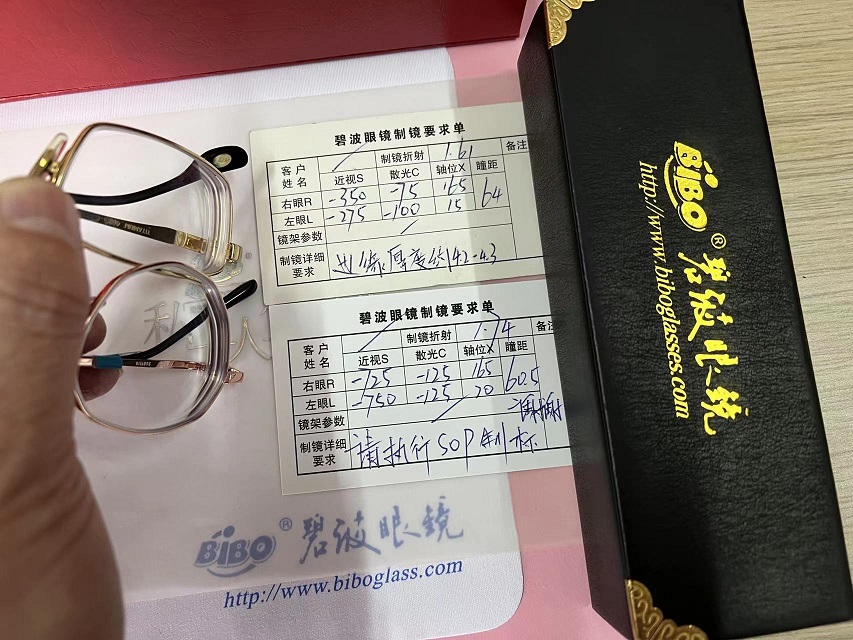 碧波眼镜制镜要求单
客户姓名 制镜折射 1.61 备注
近视S 散光C 轴位X 瞳距
右眼R -350 -75 165 64
左眼L -275 -100 15
镜架参数
制镜详细要求 边缘厚度约4.2-4.3
碧波眼镜制镜要求单
客户姓名 制镜折射 1.74 备注
近视S 散光C 轴位X 瞳距
右眼R -725 -125 165 60.5
左眼L -750 -125 20
镜架参数 谢谢
制镜详细要求 请执行SOP制标
BiBO® 碧波眼镜
http://www.biboglass.com
BiBO® 碧波眼镜
http://www.biboglasses.com